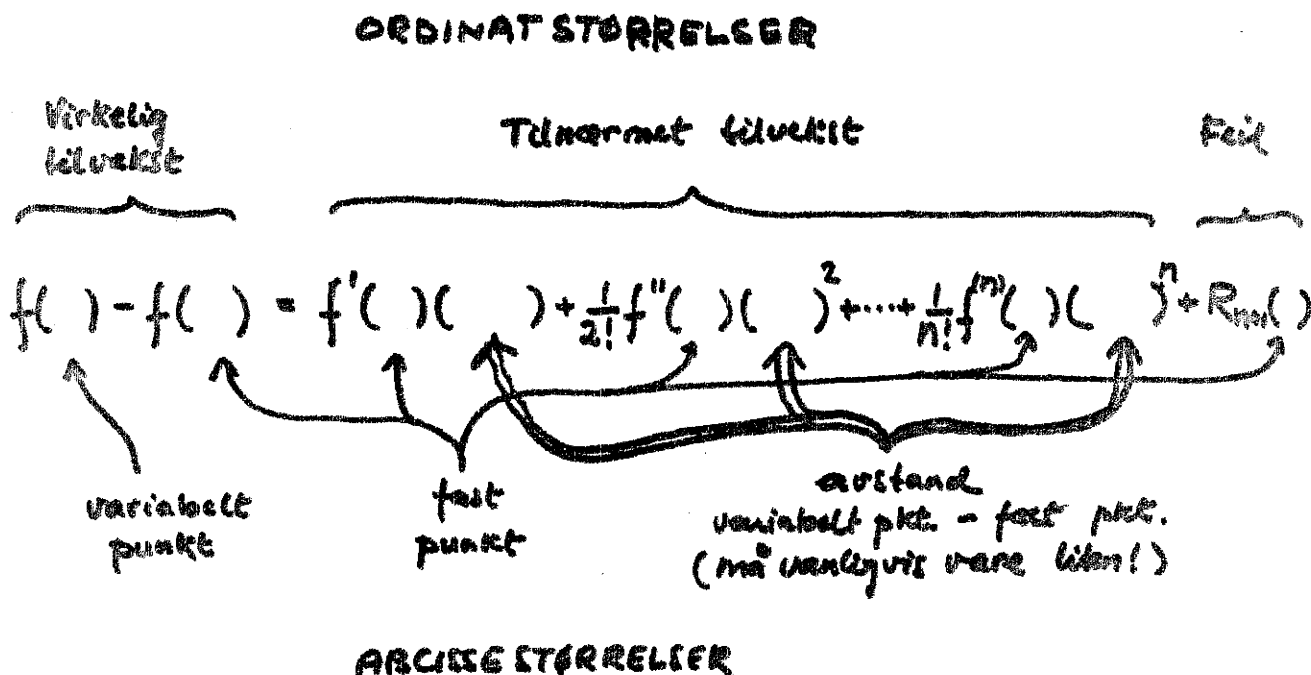 ORDINAT STØRRELSER
Virkelig
tilvekst
Tilnærmet tilvekst
Feil
f( ) - f( ) = f'( )( ) + \frac{1}{2!} f''( )( )^2 + ... + \frac{1}{n!} f^{(n)}( )( )^n + R_{n+1}( )
variabelt
punkt
fast
punkt
avstand
variabelt pkt. - fast pkt.
(må vanligvis være liten!)
ABCISSE STØRRELSER